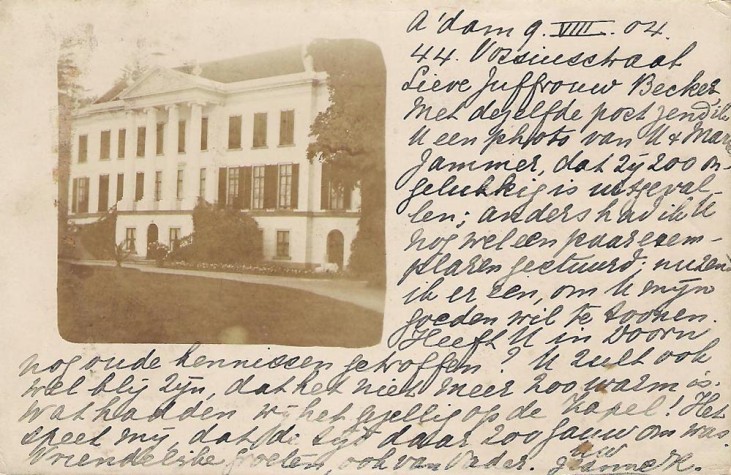 A'dam 9. VIII. 04.
44. Vossiusstraat
Lieve Juffrouw Becker
Met dezelfde post zend ik
U een photo van U & Marie
Jammer, dat zij zoo on-
gelukkig is uitgeval-
len; anders had ik U
nog wel een paar exem-
plaren gestuurd; nu zend
ik er een, om U mijn
goeden wil te toonen.
Heeft U in Doorn
nog oude kennissen getroffen? U zult ook
wel blij zijn, dat het niet meer zoo warm is.
Wat hadden wij het gezellig op de Kapel! Het
speet mij, dat de tijd daar zoo gauw om was.
Vriendelijke groeten, ook van Vader. uw